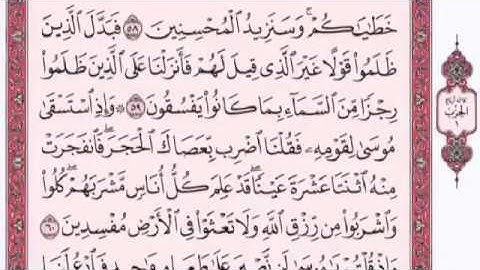 خَطَٰيَٰكُمۡۚ وَسَنَزِيدُ ٱلۡمُحۡسِنِينَ ٥٨ فَبَدَّلَ ٱلَّذِينَ
ظَلَمُواْ قَوۡلًا غَيۡرَ ٱلَّذِي قِيلَ لَهُمۡ فَأَنزَلۡنَا عَلَى ٱلَّذِينَ ظَلَمُواْ
رِجۡزٗا مِّنَ ٱلسَّمَآءِ بِمَا كَانُواْ يَفۡسُقُونَ ٥٩ ۞ وَإِذِ ٱسۡتَسۡقَىٰ
مُوسَىٰ لِقَوۡمِهِۦ فَقُلۡنَا ٱضۡرِب بِّعَصَاكَ ٱلۡحَجَرَۖ فَٱنفَجَرَتۡ
مِنۡهُ ٱثۡنَتَا عَشۡرَةَ عَيۡنٗاۖ قَدۡ عَلِمَ كُلُّ أُنَاسٖ مَّشۡرَبَهُمۡۖ كُلُواْ
وَٱشۡرَبُواْ مِن رِّزۡقِ ٱللَّهِ وَلَا تَعۡثَوۡاْ فِي ٱلۡأَرۡضِ مُفۡسِدِينَ ٦٠
وَإِذۡ قُلۡتُمۡ يَٰمُوسَىٰ لَن نَّصۡبِرَ عَلَىٰ طَعَامٖ وَٰحِدٖ فَٱدۡعُ لَنَا
الحزب